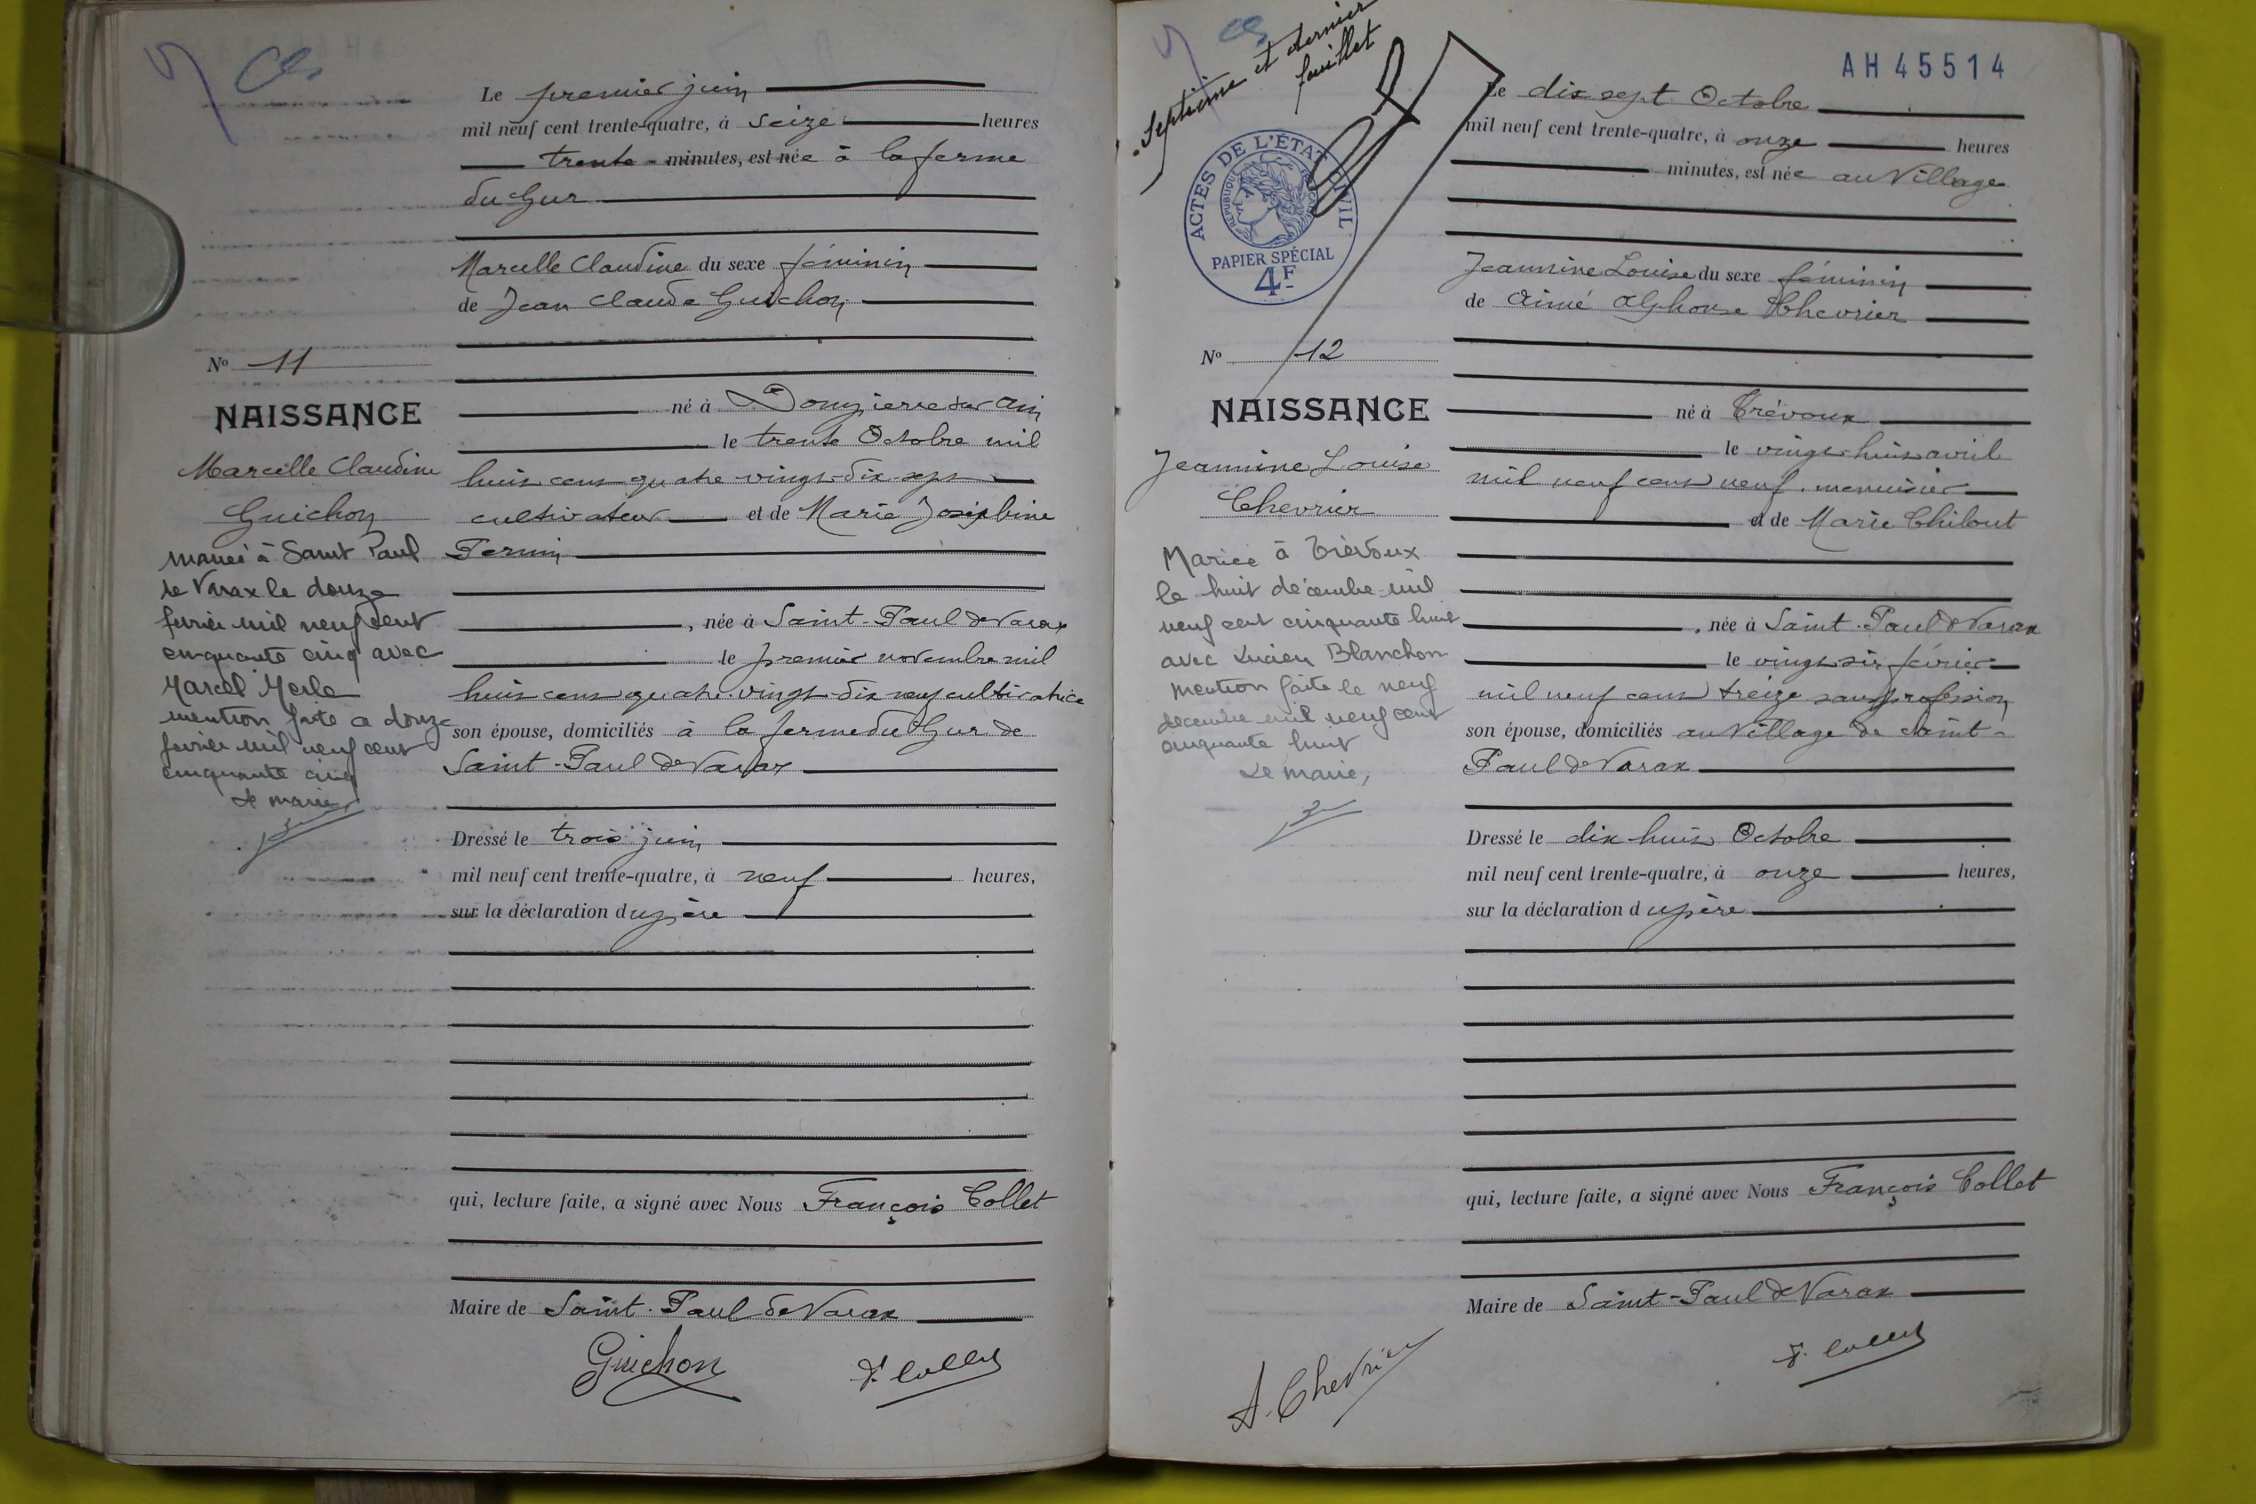 Le premier juin
mil neuf cent trente-quatre, à seize heures
trente minutes, est née à la ferme
du Gur
Marcelle Claudine du sexe féminin
de Jean Claude Guichon
Nº 11
NAISSANCE
Marcelle Claudine
Guichon
né à sur Ain
le trente Octobre mil
huit cent quatre vingt dix sept
cultivateur et de Marie Joséphine
Perrin
, née à Saint-Paul de Varax
le premier novembre mil
huit cent quatre vingt dix neuf cultivatrice
son épouse, domiciliés à la ferme du Gur de
Saint-Paul de Varax
Mariée à Saint Paul
de Varax le douze
fevrier mil neuf cent
cinquante cinq avec
Marcel Merle
mention faite le douze
fevrier mil neuf cent
cinquante cinq
Le maire
Dressé le trois juin
mil neuf cent trente-quatre, à neuf heures,
sur la déclaration du père
qui, lecture faite, a signé avec Nous François Collet
Maire de Saint-Paul de Varax
Guichon F. Collet
Septième et dernier
feuillet
AH 45514
ACTES DE L'ÉTAT CIVIL
RÉPUBLIQUE
PAPIER SPÉCIAL
4F
Le dix sept Octobre
mil neuf cent trente-quatre, à onze heures
minutes, est née au Village
Jeannine Louise du sexe féminin
de Aimé Alphonse Chevrier
Nº 12
NAISSANCE
Jeannine Louise
Chevrier
né à Trévoux
le vingt huit avril
mil neuf cent neuf, menuisier
et de Marie Chilout
, née à Saint-Paul de Varax
le vingt six février
mil neuf cent treize sans profession
son épouse, domiciliés au Village de Saint-
Paul de Varax
Mariée à Trévoux
le huit décembre mil
neuf cent cinquante huit
avec Lucien Blanchon
mention faite le neuf
decembre mil neuf cent
cinquante huit
Le maire,
Dressé le dix huit Octobre
mil neuf cent trente-quatre, à onze heures,
sur la déclaration du père
qui, lecture faite, a signé avec Nous François Collet
Maire de Saint-Paul de Varax
A. Chevrier F. Collet